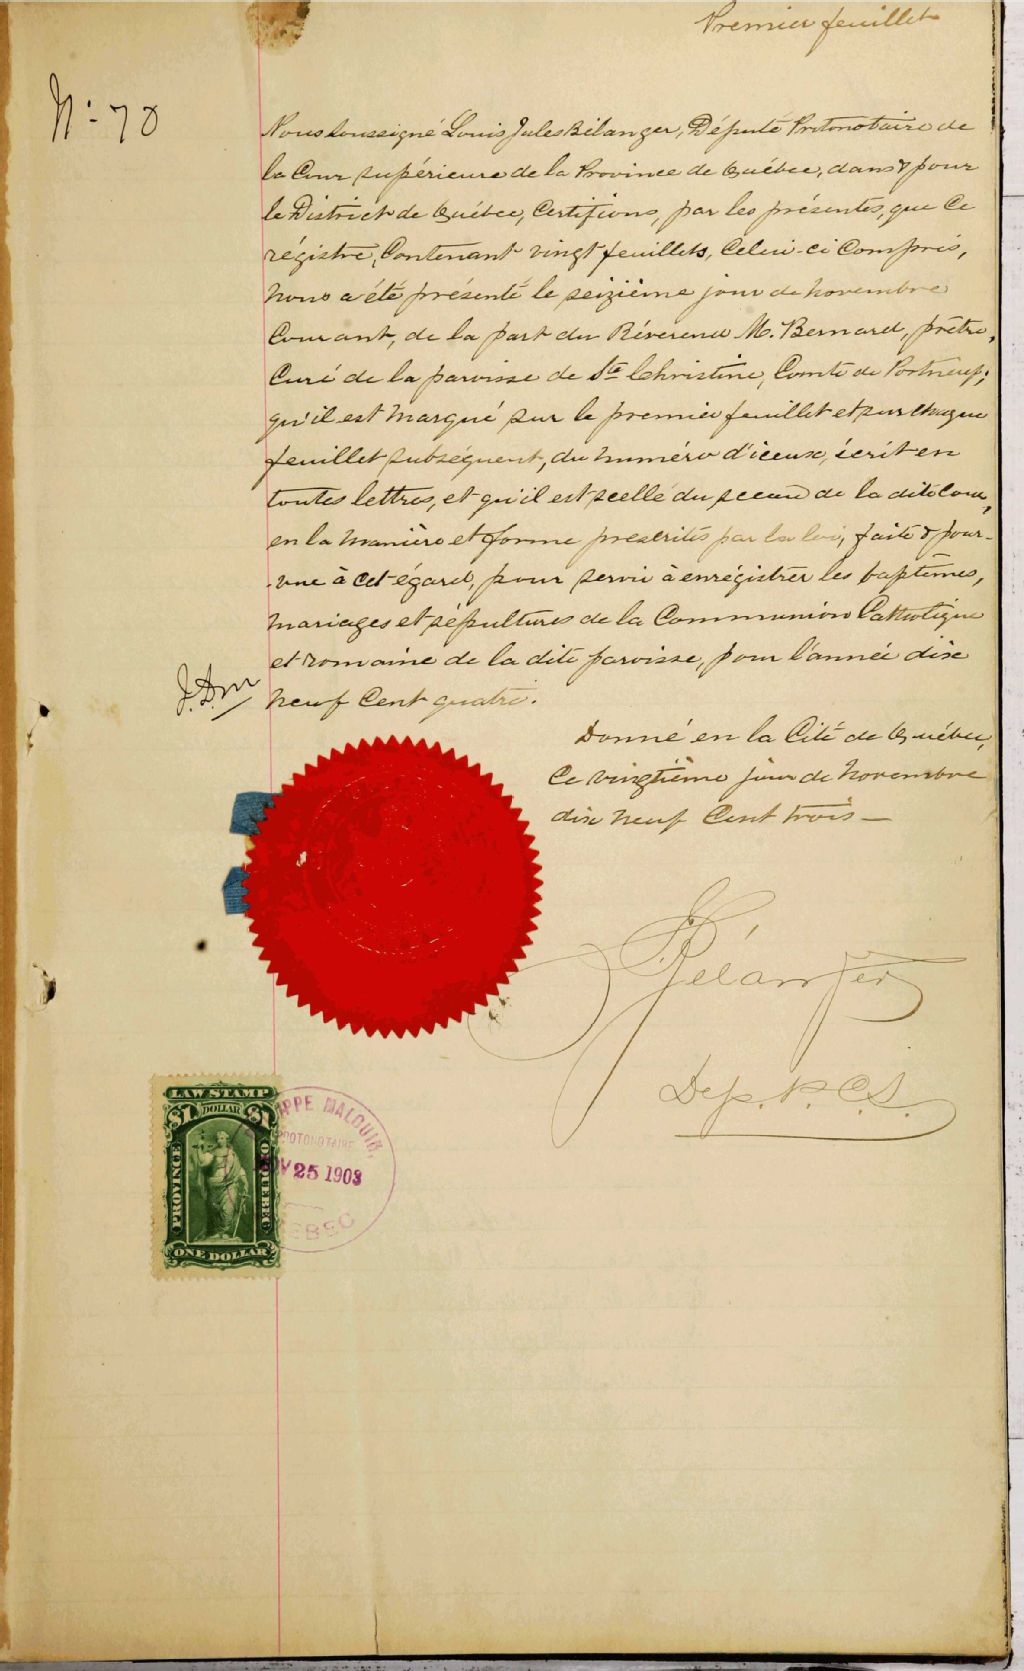 Premier feuillet
No: 70
Nous soussigné Louis Jules Bélanger, Député Protonotaire de
la Cour supérieure de la Province de Québec, dans & pour
le District de Québec, Certifions, par les présentes, que Ce
régistre, Contenant vingt feuillets, Celui-ci Compris,
nous a été présenté le seizième jour de novembre
Courant, de la part du Révérend M. Bernard, prêtre,
Curé de la paroisse de Ste Christine, Comté de Portneuf;
qu'il est marqué sur le premier feuillet et sur chaque
feuillet subséquent, du numéro d'iceux, écrit en
toutes lettres, et qu'il est scellé du sceau de la dite Cour,
en la manière et forme prescrites par la loi, faite & pour-
-vue à cet égard, pour servir à enrégistrer les baptêmes,
mariages et sépultures de la Communion Catholique
et romaine de la dite paroisse, pour l'année dix
neuf Cent quatre.
Donné en la Cité de Québec,
Ce vingtième jour de novembre
dix neuf Cent trois—
Bélanger
Dep. P.C.S.
LAW STAMP
$1 DOLLAR $1
PROVINCE OF QUEBEC
ONE DOLLAR
PPE MALOUIN,
PROTONOTAIRE
NOV 25 1903
QUEBEC